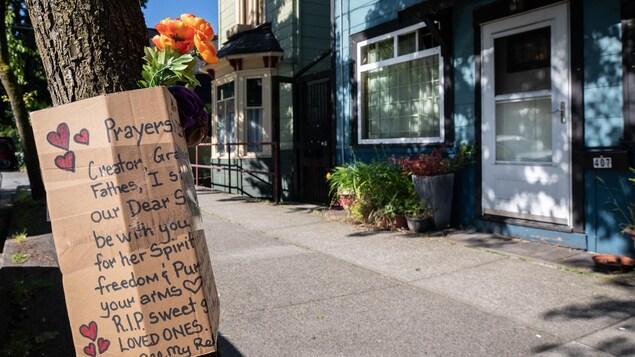 Prayers
Creator Gra
Fathes, I s
our Dear S
be with you
for her Spirit
freedom & Pu
your arms
R.I.P. sweet
LOVED ONES.
My Re
407